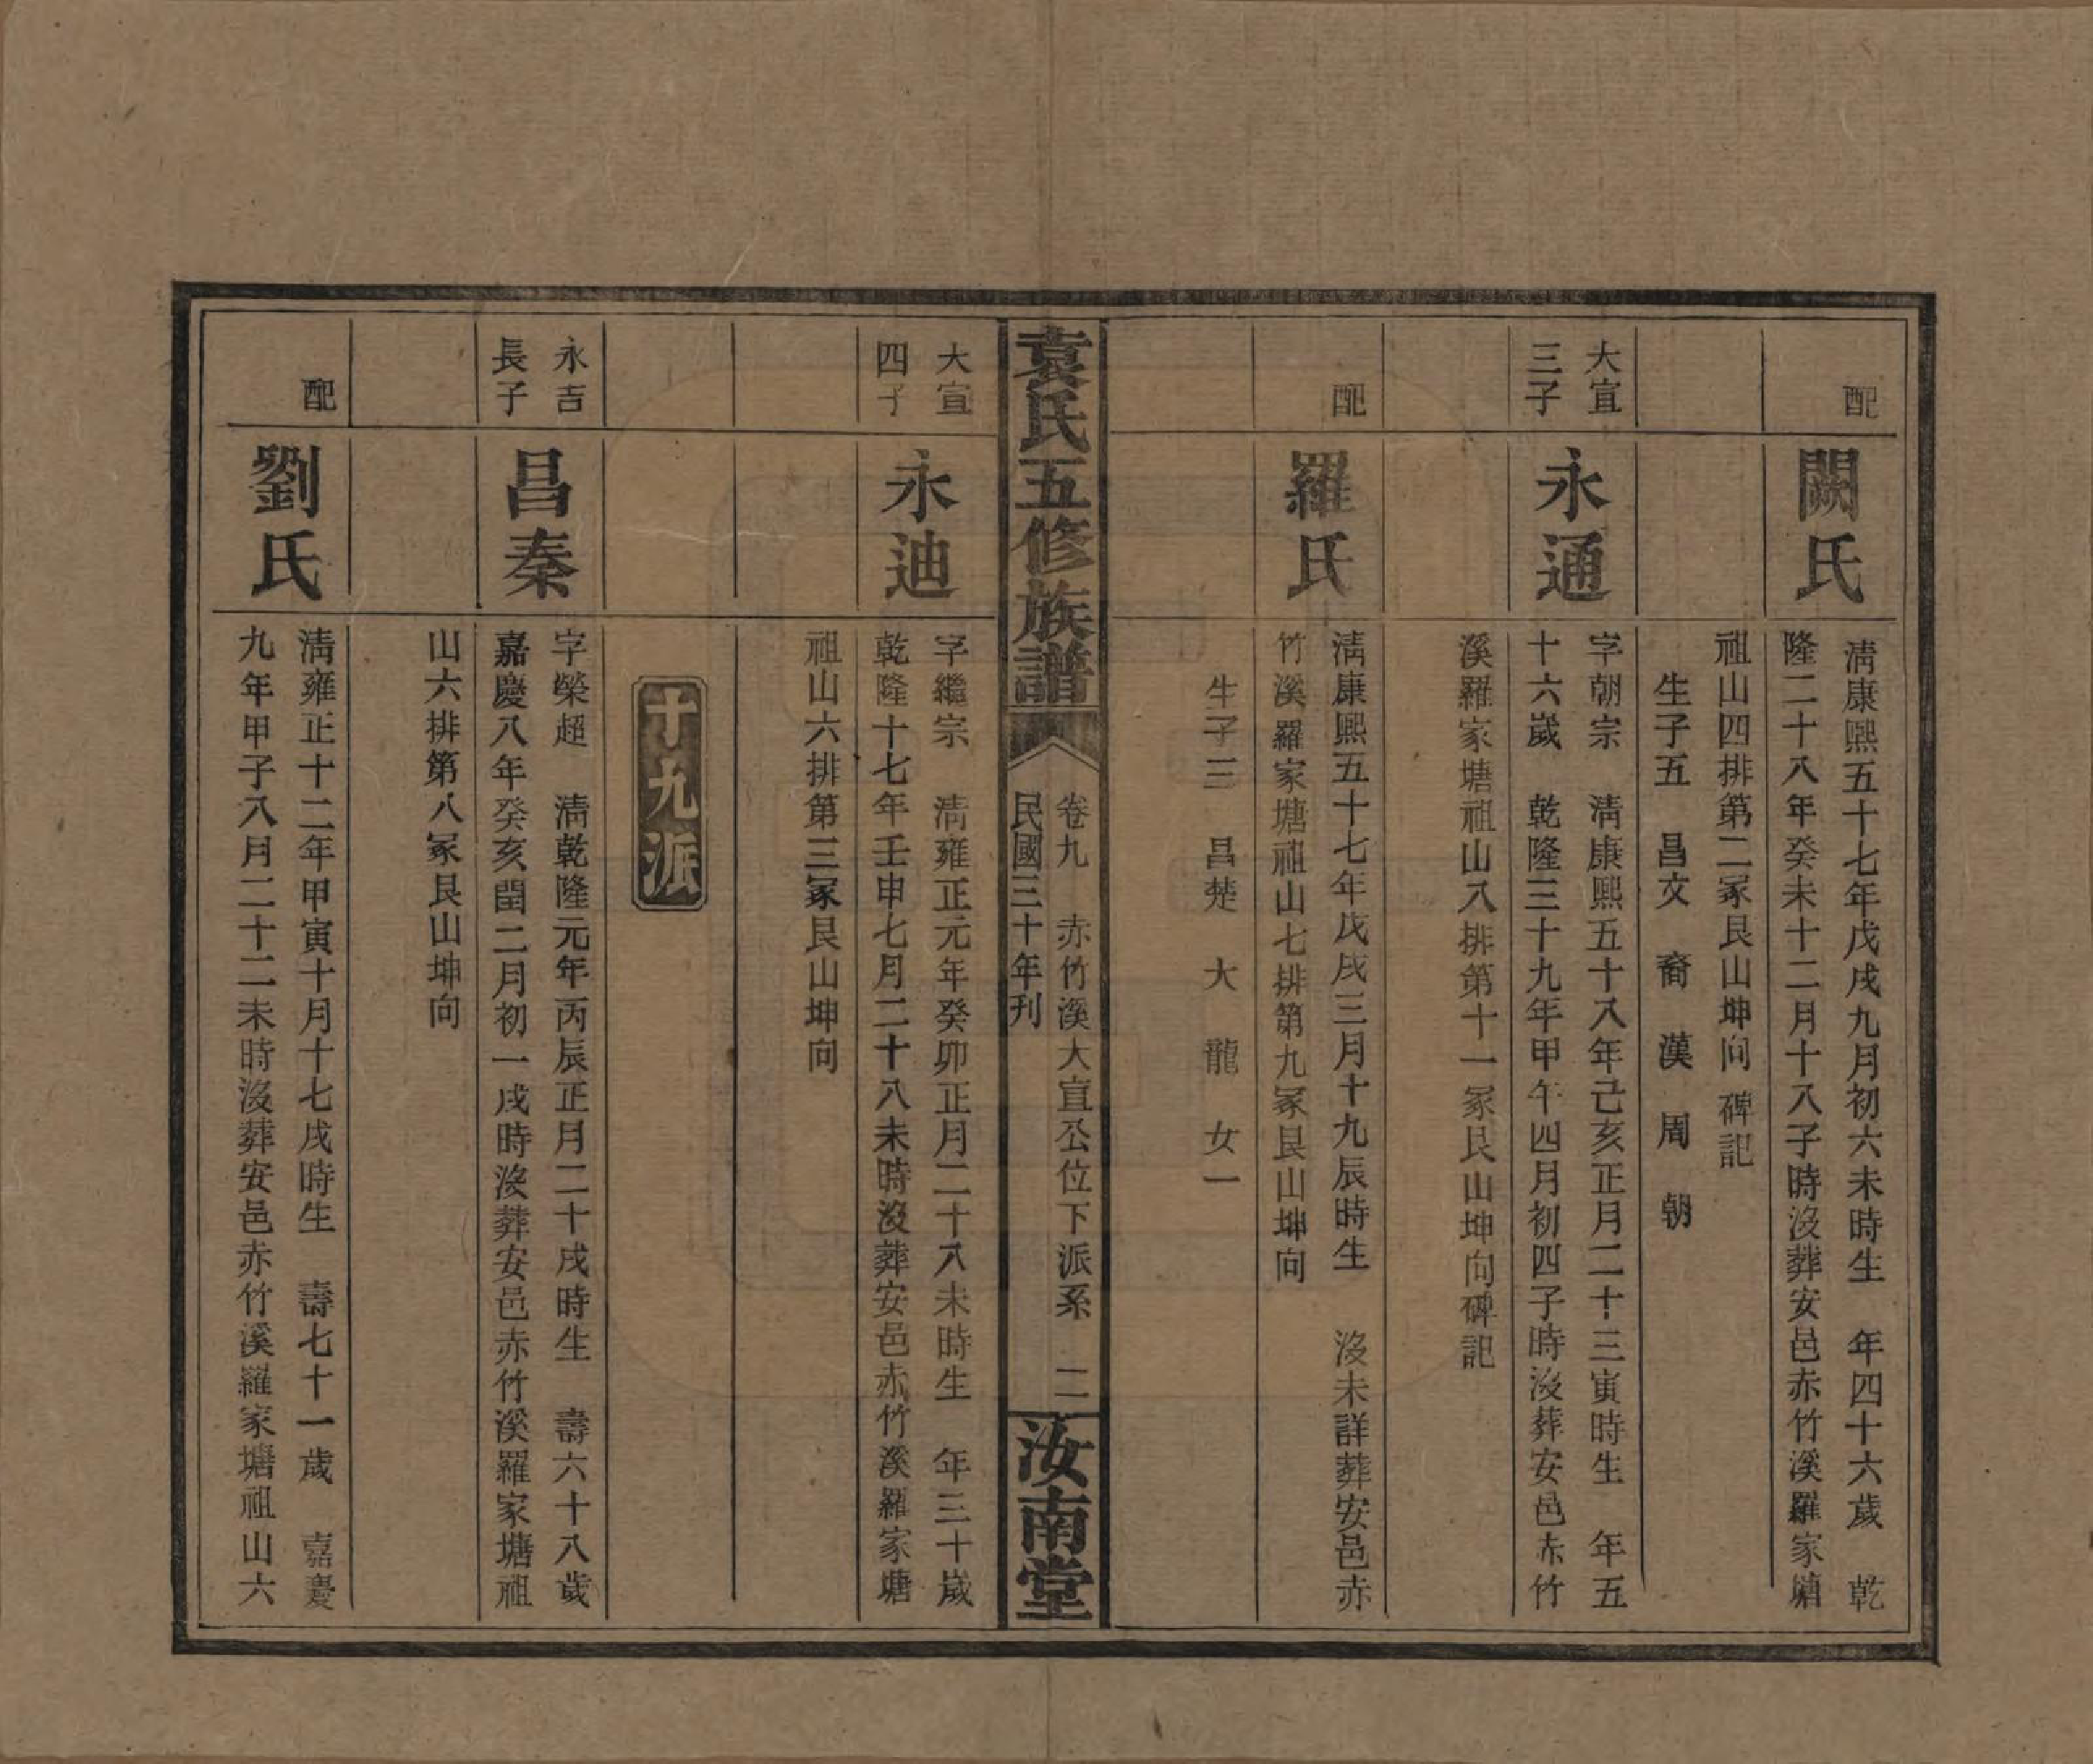 配
闕氏
清康熙五十七年戊戌九月初六未時生　年四十六歲　乾
隆二十八年癸未十二月十八子時沒葬安邑赤竹溪羅家塘
祖山四排第二冢艮山坤向碑記
生子五　昌文　裔　漢　周　朝
大宣
三子
永通
字朝宗　清康熙五十八年己亥正月二十三寅時生　年五
十六歲　乾隆三十九年甲午四月初四子時沒葬安邑赤竹
溪羅家塘祖山八排第十一冢艮山坤向碑記
配
羅氏
清康熙五十七年戊戌三月十九辰時生　沒未詳葬安邑赤
竹溪羅家塘祖山七排第九冢艮山坤向
生子三　昌楚　大　龍　女一
袁氏五修族譜
卷九　赤竹溪大宣公位下派系　二
民國三十年刊
汝南堂
大宣
四子
永迪
字繼宗　清雍正元年癸卯正月二十八未時生　年三十歲
乾隆十七年壬申七月二十八未時沒葬安邑赤竹溪羅家塘
祖山六排第三冢艮山坤向
十九派
永吉
長子
昌秦
字榮超　清乾隆元年丙辰正月二十戌時生　壽六十八歲
嘉慶八年癸亥閏二月初一戌時沒葬安邑赤竹溪羅家塘祖
山六排第八冢艮山坤向
配
劉氏
清雍正十二年甲寅十月十七戌時生　壽七十一歲　嘉慶
九年甲子八月二十二未時沒葬安邑赤竹溪羅家塘祖山六